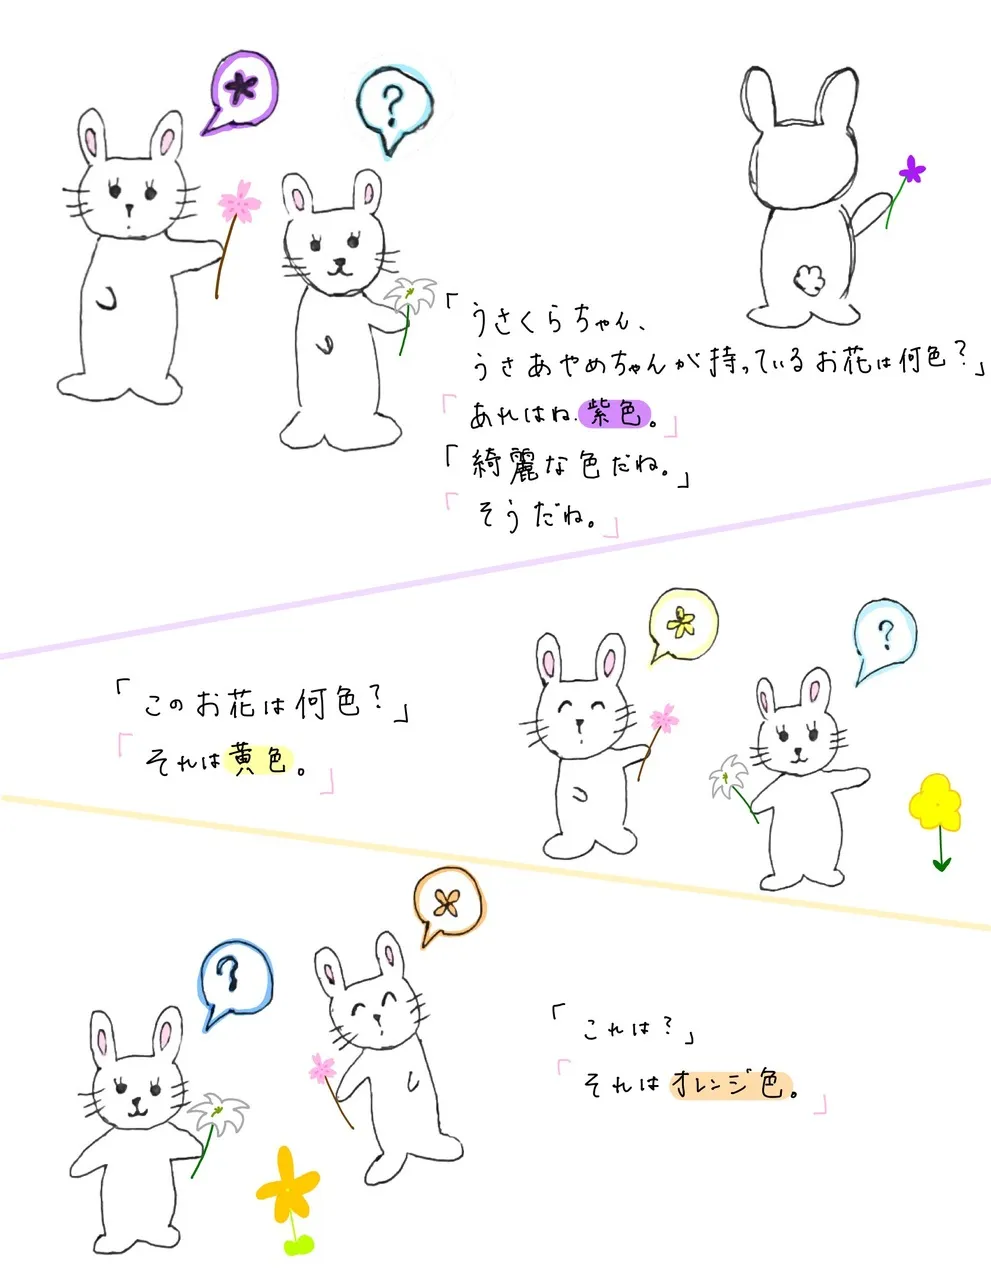 ?
?
「うさくらちゃん、
うさあやめちゃんが持っているお花は何色?」
「あれはね、紫色。」
「綺麗な色だね。」
「そうだね。」
?
「このお花は何色?」
「それは黄色。」
?
「これは?」
「それはオレンジ色。」